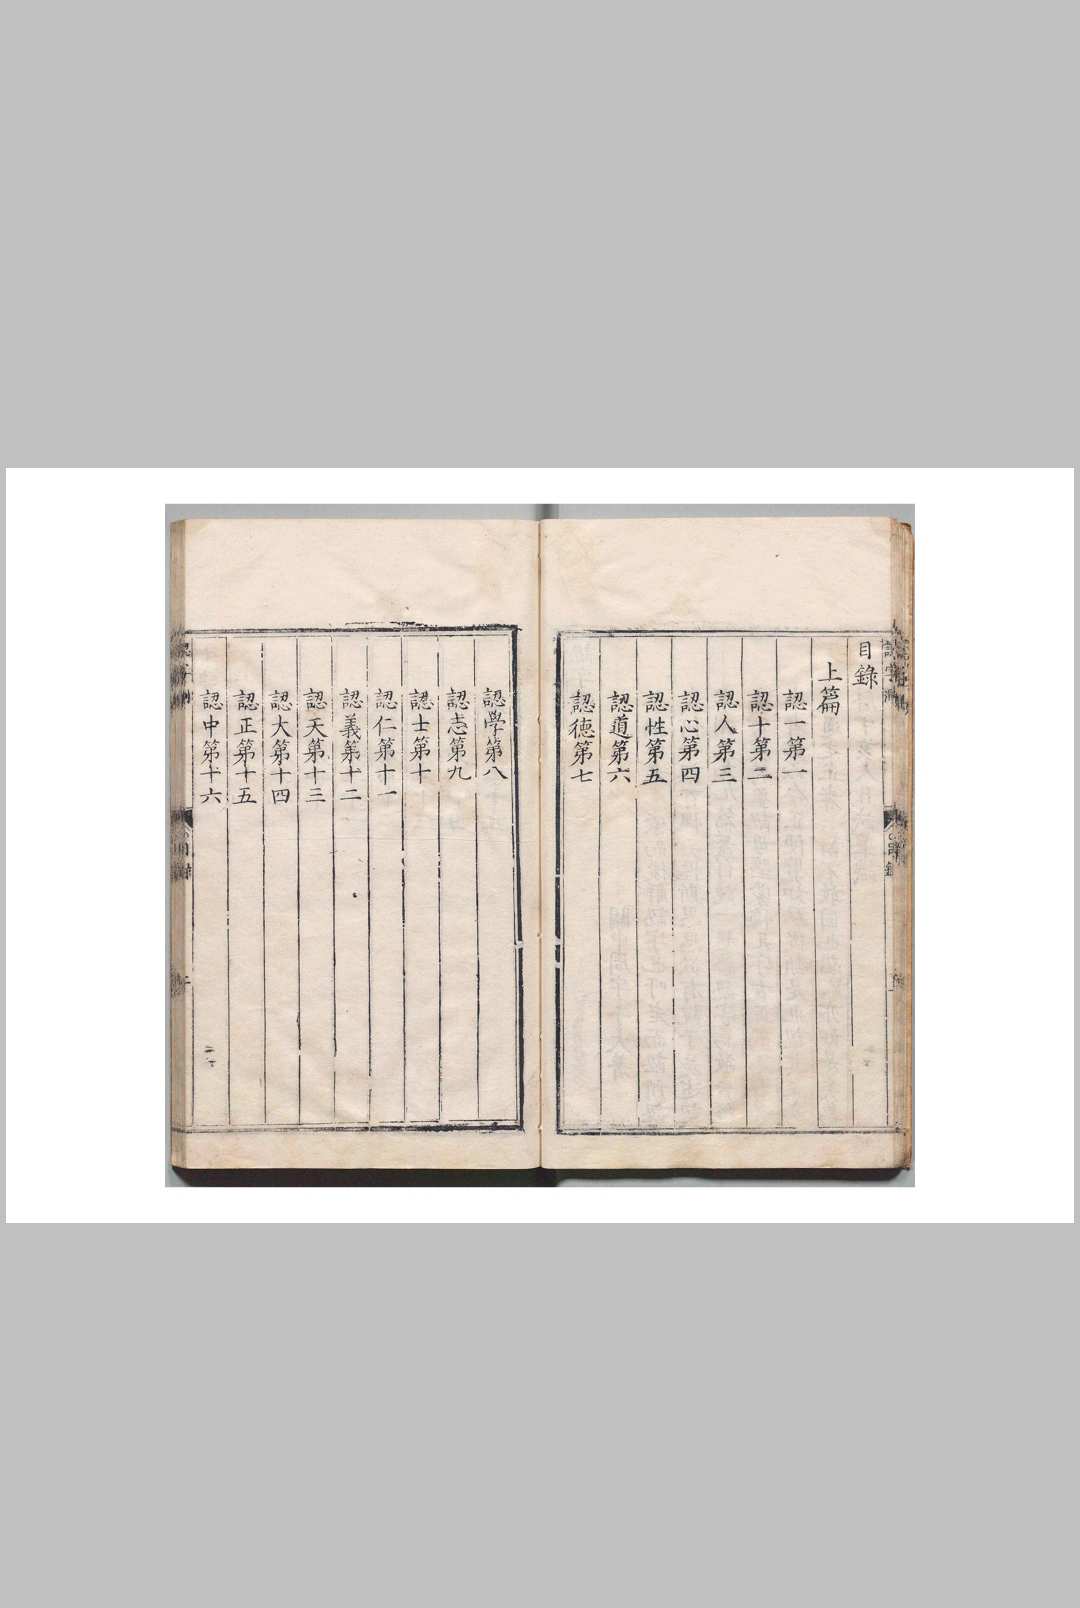 目錄
上篇
認一第一
認十第二
認人第三
認心第四
認性第五
認道第六
認德第七
認學第八
認志第九
認士第十
認仁第十一
認義第十二
認天第十三
認大第十四
認正第十五
認中第十六